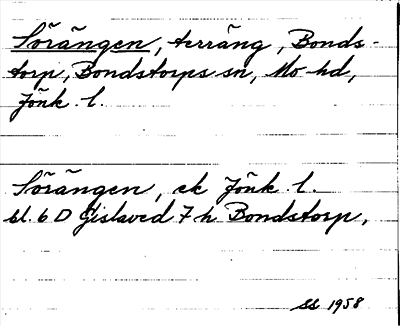 Sörängen, terräng, Bonds-
torp, Bondstorps sn, Mo hd,
Jönk. l.
Sörängen, ek Jönk. l.
bl. 6 D Gislaved 7 h Bondstorp.
SS 1958